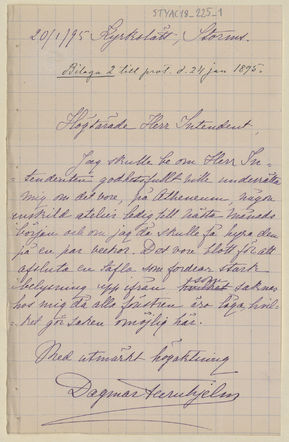 STYAC18_225_1
20/1/95 Kyrkslätt, Storms.
Bilaga 2 till prot. d. 24 jan 1895.
Högtärade Herr Intendent,
Jag skulle be om Herr In-
tendenten godhetsfullt ville underrätta
mig om det vore, på Atheneum, någon
enskild atelier ledig till nästa månads
början och om jag då skulle få hyra den
på en par veckor. Det vore blott för att
afsluta en tafla som fordrar stark
belysning uppifrån som saknas
hos mig då alla fönstren äro låga, hvil-
ket gör saken omöjlig här.
Med utmärkt högaktning
Dagmar